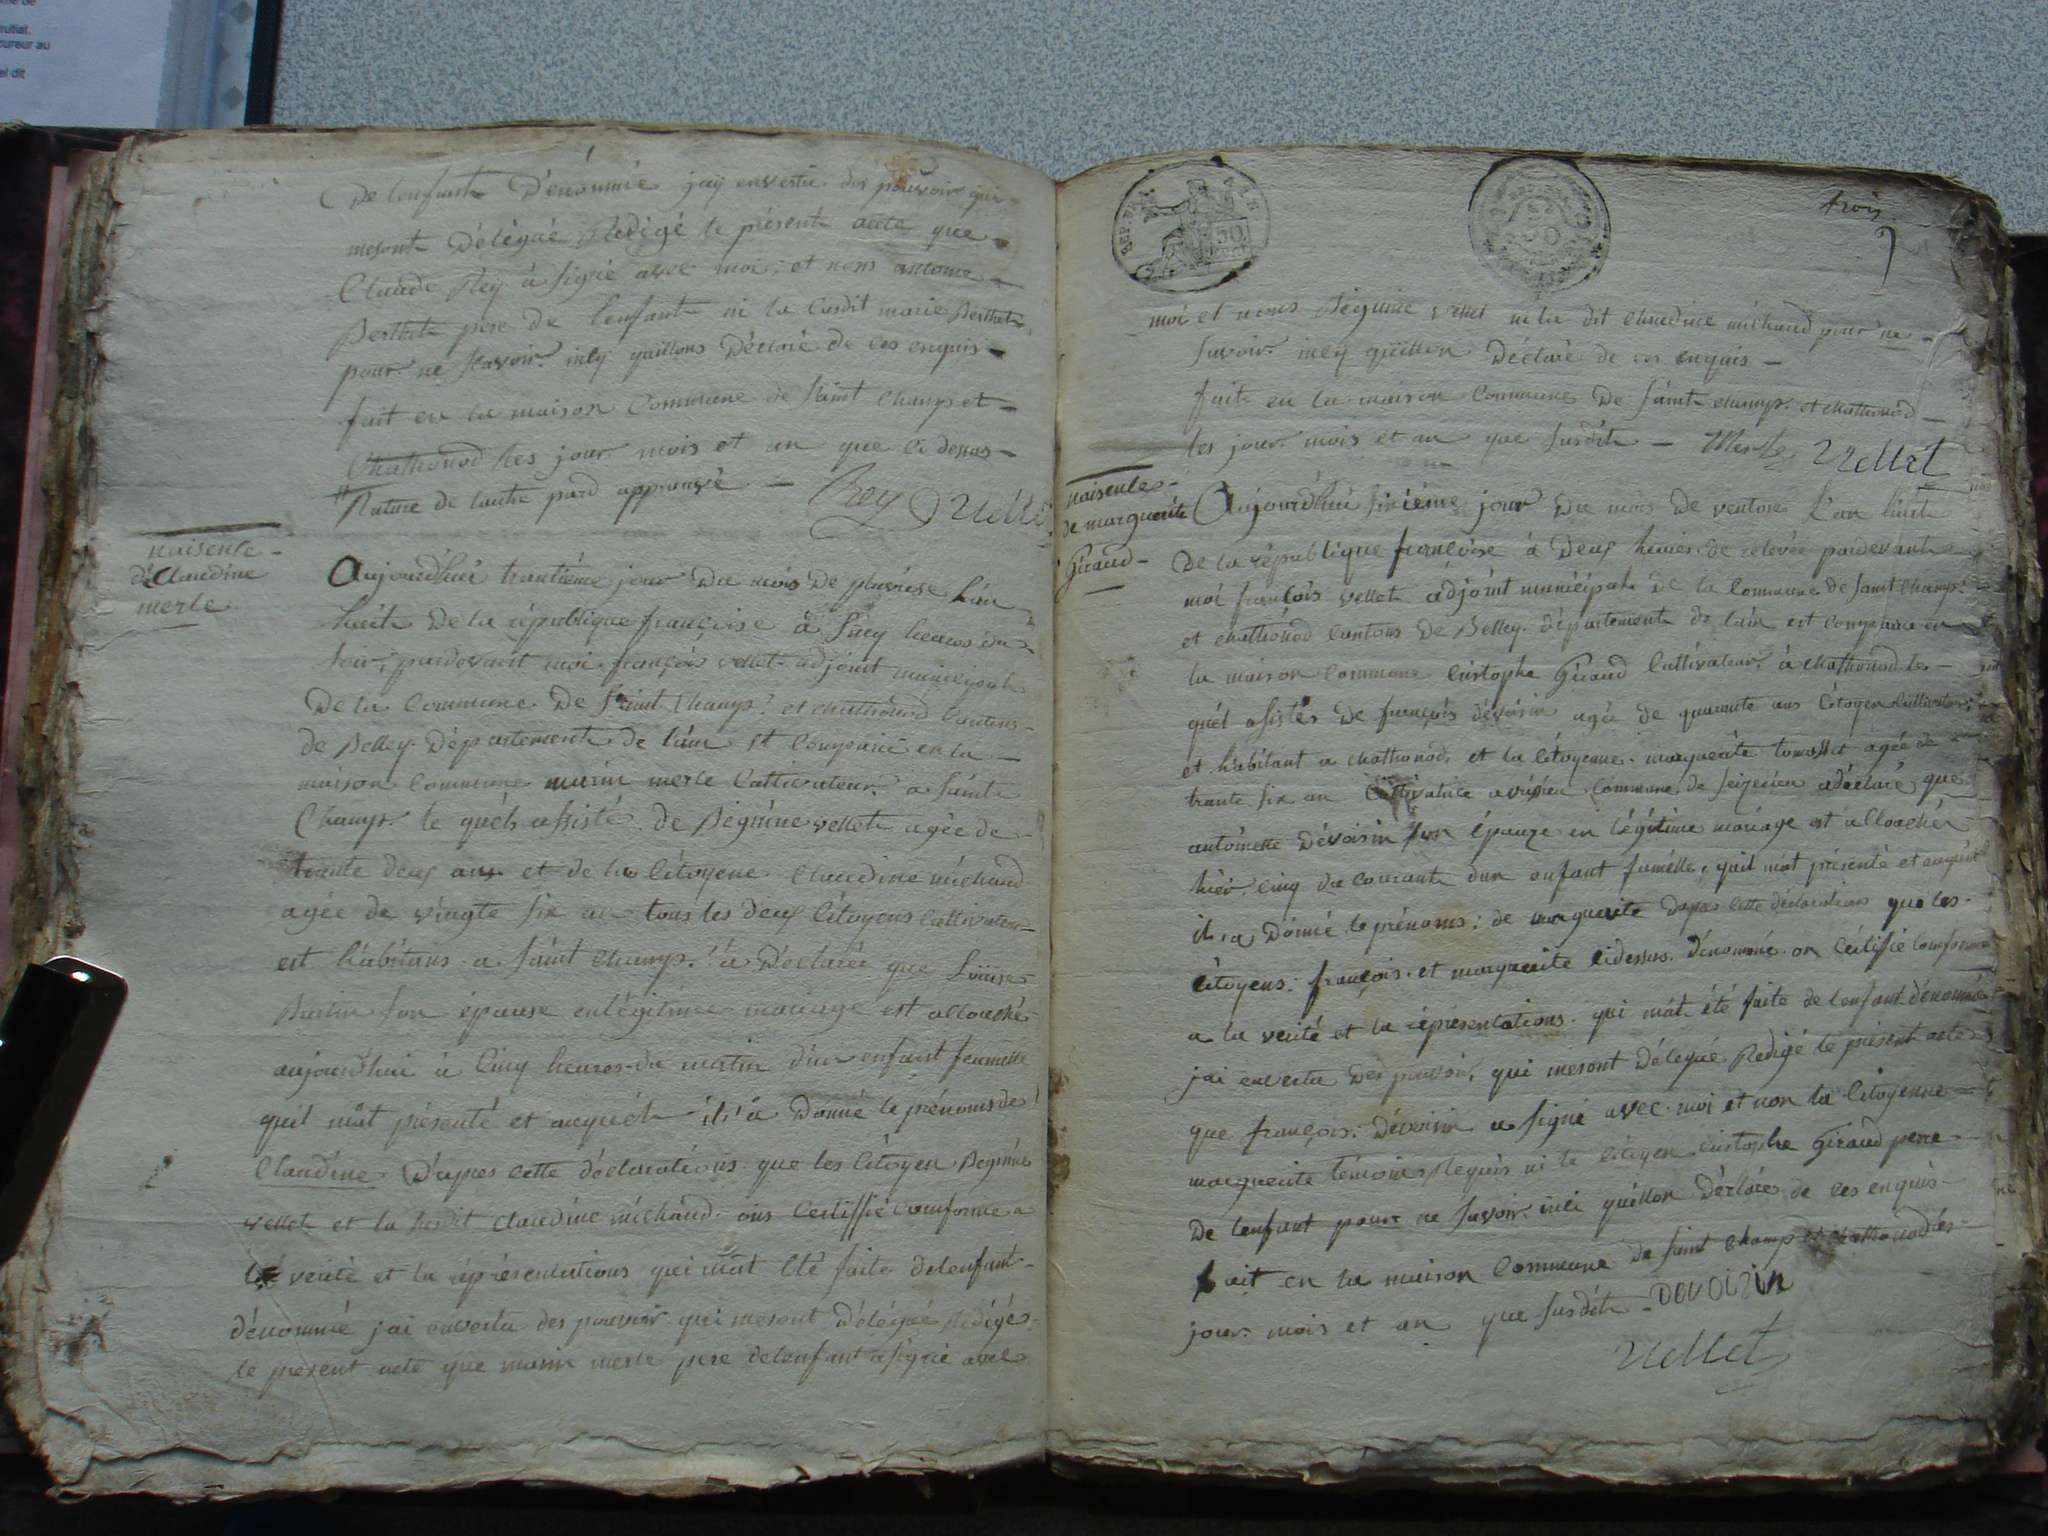 de lenfante Dénommé jay envertu des pouvoir qui
mesont Délégué Redigé le présente acte que
Claude Rey à signé avec moi, et nons antoine
Berthet pere de l'enfante ni la susdit marie Berthet
pour ne scavoir. incy quillons Déclaré de ces enquis
fait en la maison Commune de Saint Champ et
Chathonod les jour mois et an que ci dessus
Rature de lautre pard approuvée
Rey Vellet
naisence
de Claudine
merle
Aujourdhui trantiéme jour Du mois De pluviose L'an
huite De la république françoise à Sincy heures du
soir, pardevant moi françois vellet adjoint municipale
De la Commune De Saint Champ. et chathonod Cantons
de Belley. Département de lain est Comparue en la
maison Commune marin merle Cultivateur a Sainte
Champ. le quéls assisté de Béginine vellet agée de
trante deux ans et de la Citoyene Claudine michaud
agée de vingte six an tous les deux Citoyens Cultivateur
est habitans a Saint Champ. a Déclarée que Louise
son épause enlégitime mariage est allouché
aujourdhui à Cinq heures du matin d'un enfant feumelle
quil mât présenté et auquél il à Donné le prénoms de
Claudine D'apres cette déclarations que les Citoyen
vellet et la susdit claudine michaud ons Certiffié Comforme a
la verité et la répresentations qui mat été faite delenfant
dénommé jai envertu des pouvoir qui mesont Délégué Redigés
le present acte que marin merle pere delenfant a signé avec
trois
REP. FRA.
50
moi et nons vellet ni la dit Claudine michaud pour ne
savoir incy quillon Déclaré de ces enquis
fait en la maison Commune De Saint champ. et chathonod
les jour mois et an que susdit Merle Vellet
naisence
de marguerite
Giraud
Aujourdhui sixiéme jour Du mois de ventose L'an huit
De la république françoise à Deux heures de relevée pardevant
moi françois vellet adjoint municipal de la Commune de Saint Champ.
et chathonod Cantons De Belley. département de lain est Comparue en
la maison Commune Cristophe Giraud Cultivateur à chathonod le
quél asistés De françois dévoisin agée de quarante ans Citoyen Cultivateur
et habitant a chathonod, et la Citoyenne marguerite agée de
trante six an Cultivatrice Commune de a déclaré que
antoinette Dévoisin son épauze en légitime mariage est allouchér
hier cinq du courante dun enfant fumélle, quil mât présenté et auquél
il a Donné le prénoms; de marguerite dapres cette déclarations que les
Citoyens; françois. et marguerite cidessus. dénommé. on Certifié Comforme
a la verité et la réprésentations. qui mât été faite de lenfant dénommé
jai envertu Des pouvoir, qui mesont Délégué Redigé le présent acte
que françois. dévoisin a signé avec moi et non la Citoyenne
marguerite témoins Requis ni le Citoyen Cristophe Giraud pere
De lenfant pour ne savoir inci quillon Déclaré de ces enquis
fait en la maison Commune de saint champ et chathonod les
jour mois et an que susdit DEVOISIN
Vellet